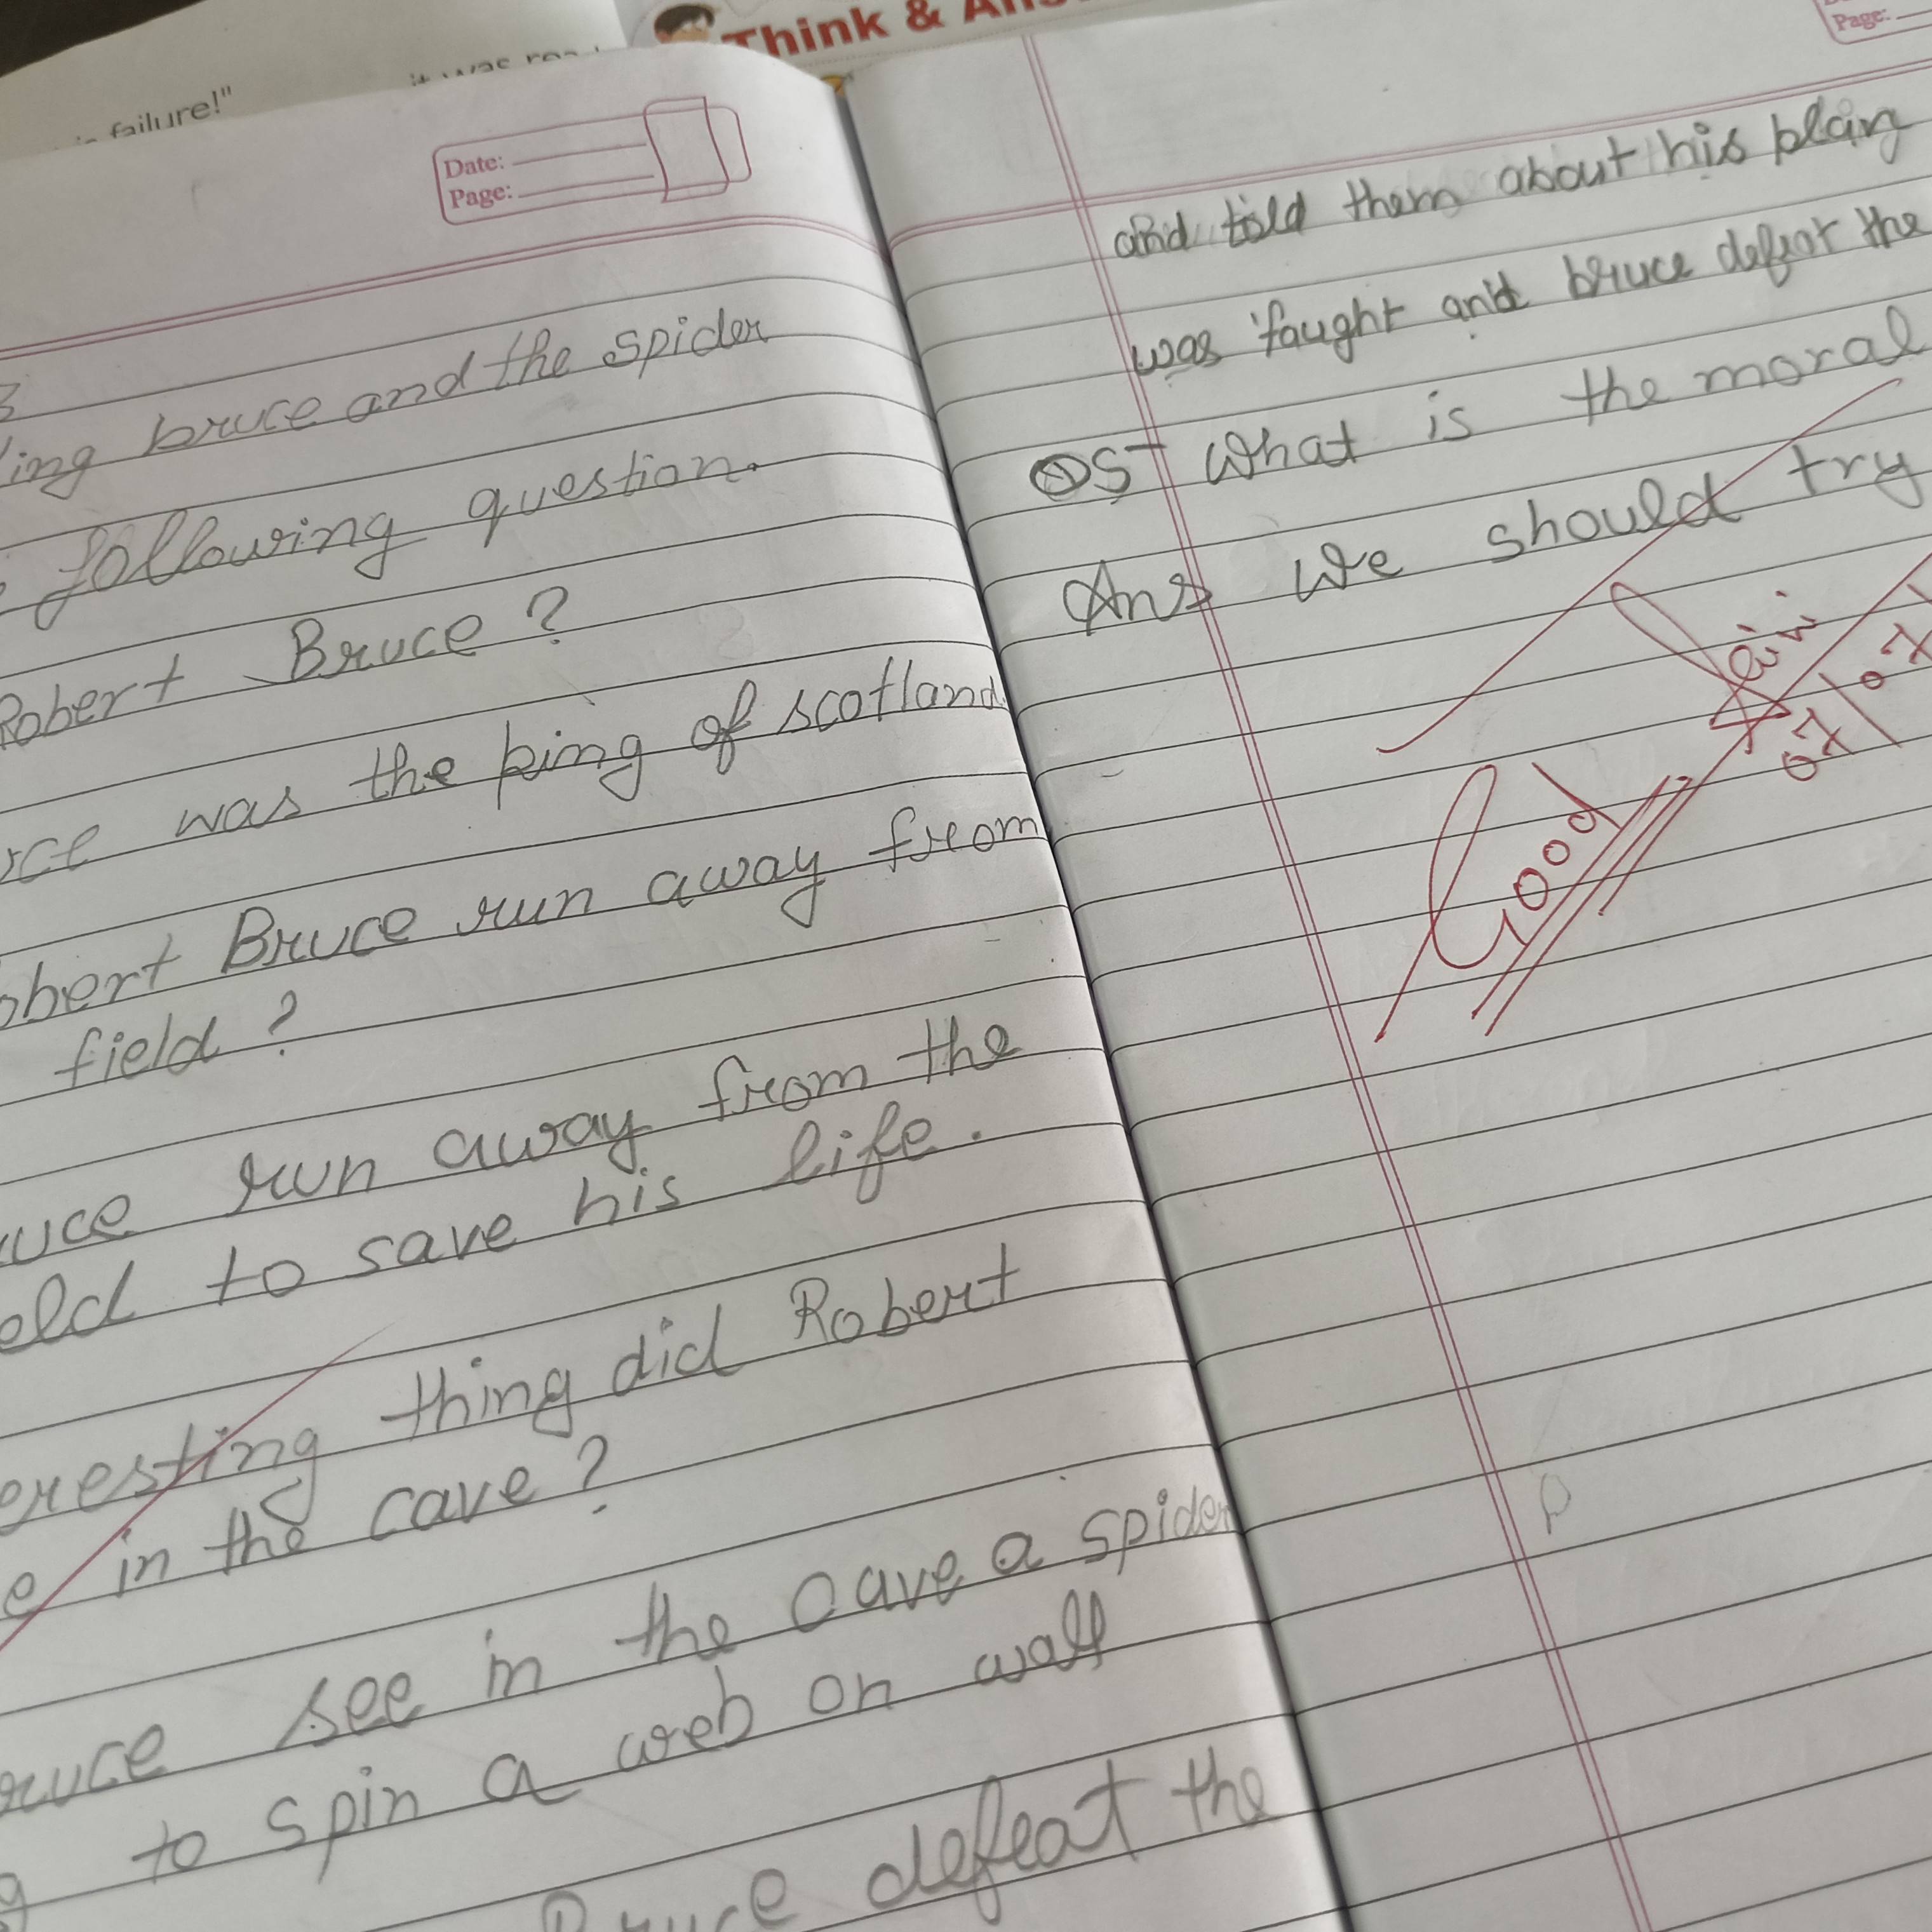 Think &
failure!"
Date:
Page:
ing bruce and the spider
following question.
Robert Bruce ?
was the king of scotland
Bruce run away from
field ?
run away from the
to save his life.
thing did Robert
in the cave ?
see in the cave a spider
to spin a web on wall
defeat the
Page:
and told them about his plan
was faught and bruce defeat the
Q5- What is the moral
Ans We should try
Good
07/07